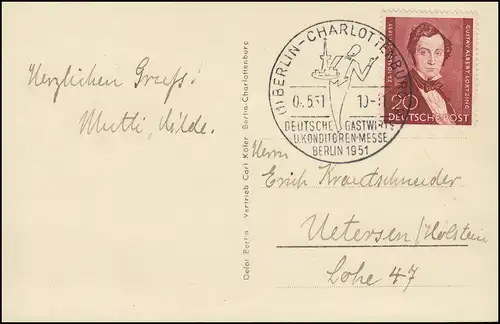 Herzlichen Gruß!
Mutti, Hilde.
Defot Berlin Vertrieb Carl Köfer Berlin-Charlottenburg
BERLIN-CHARLOTTENBURG
0.5.51 10-
DEUTSCHE GASTWIRTS
U.KONDITOREN-MESSE
BERLIN 1951
GUSTAV ALBERT LORTZING
20
DEUTSCHE POST
Herrn
Erich Krautschneider
Uetersen/Holstein
Lohe 47